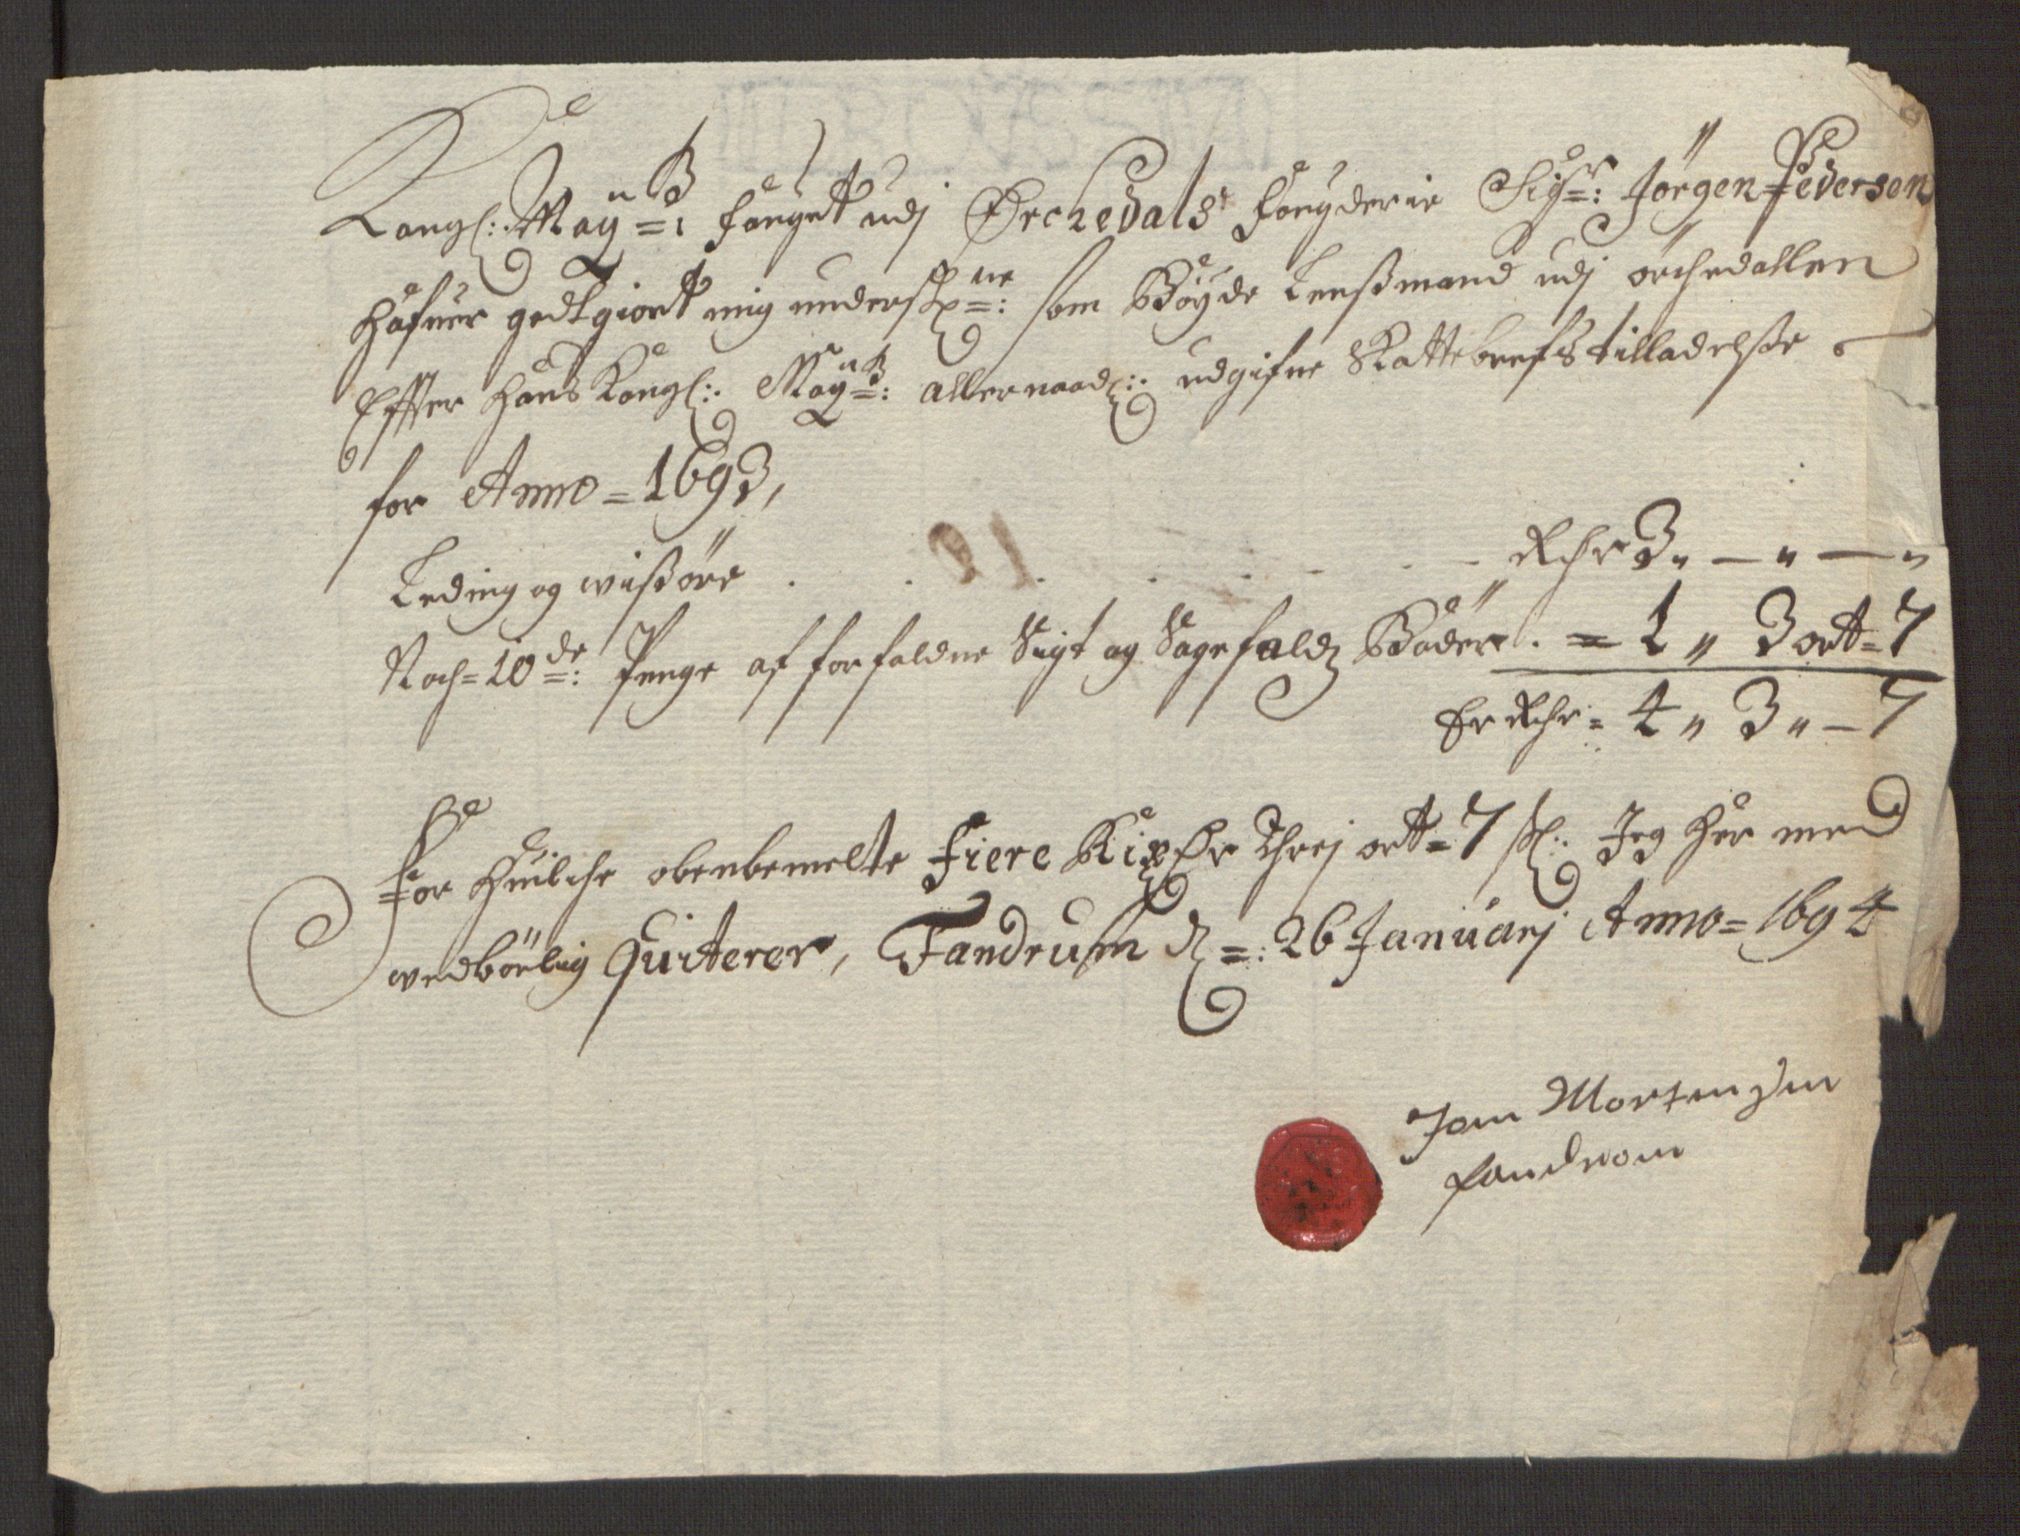 Kongl: Mayᵗˢ: fougit udj Örchedals fougderie Sigʳ: Jörgen Pedersen
Hafuer godtgiort mig underskrᵗⁿᵉ: som Böyde Lensmand udj örchedallen
Effter Hans Kongl: Mayᵗˢ: allernaad: udgifne Skattebrefs tilladelsse
for Anno = 1693,
Leding og wissöre . . . . . . . Rdr 3 „ — „ — „
Noch = 10de: Penge af forfaldne Sigt og Sagefald Böder . = 1 „ 3 ort = 7
Er Rdr = 4 „ 3 „ — 7
For Huilche obenbemelte Fiere Rixdr Threj ort = 7 s: Jeg Her med
wedbörlig Quiterer, Fandrum d =: 26 Januarj Anno = 1694
Jon Mortensen
fandrom